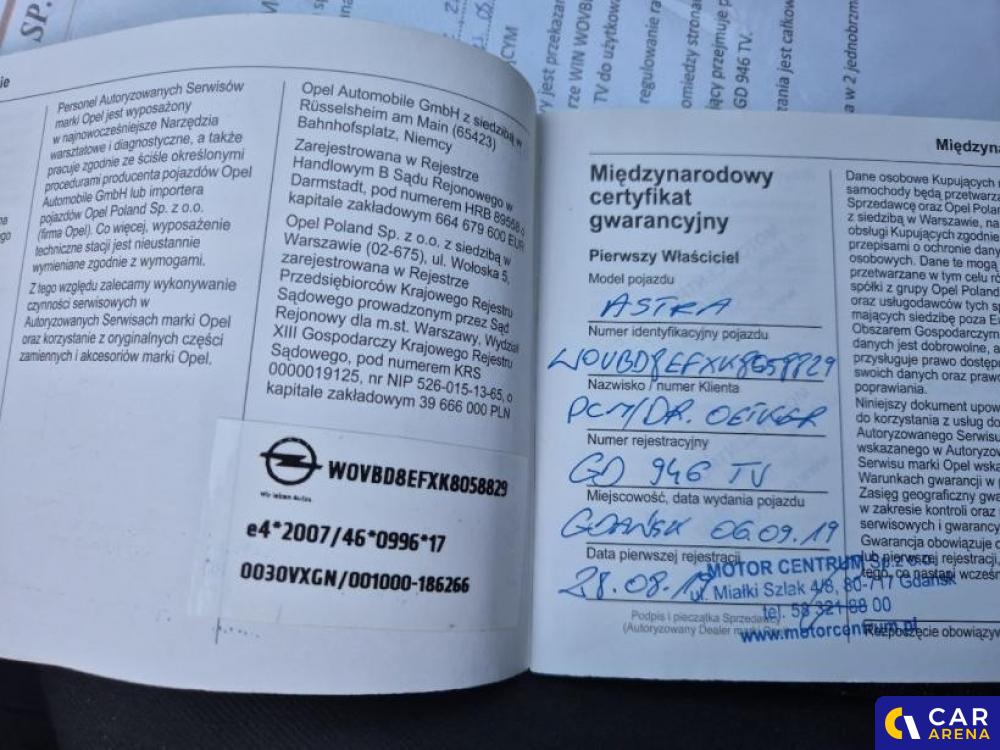 SP.
CYM
y jest przekazan
rze WIN WOVB
TV do użytkow
regulowanie ra
omiędzy stronam
jący przejmuje p
GD 946 TV.
zania jest całkow
a w 2 jednobrzm
ie
Personel Autoryzowanych Serwisów
marki Opel jest wyposażony
w najnowocześniejsze Narzędzia
warsztatowe i diagnostyczne, a także
pracuje zgodnie ze ściśle określonymi
procedurami producenta pojazdów Opel
Automobile GmbH lub importera
pojazdów Opel Poland Sp. z o.o.
(firma Opel). Co więcej, wyposażenie
techniczne stacji jest nieustannie
wymieniane zgodnie z wymogami.
Z tego względu zalecamy wykonywanie
czynności serwisowych w
Autoryzowanych Serwisach marki Opel
oraz korzystanie z oryginalnych części
zamiennych i akcesoriów marki Opel.
Opel Automobile GmbH z siedzibą w
Rüsselsheim am Main (65423)
Bahnhofsplatz, Niemcy
Zarejestrowana w Rejestrze
Handlowym B Sądu Rejonowego w
Darmstadt, pod numerem HRB 89558 o
kapitale zakładowym 664 679 600 EUR
Opel Poland Sp. z o.o. z siedzibą w
Warszawie (02-675), ul. Wołoska 5,
zarejestrowana w Rejestrze
Przedsiębiorców Krajowego Rejestru
Sądowego prowadzonym przez Sąd
Rejonowy dla m.st. Warszawy, Wydział
XIII Gospodarczy Krajowego Rejestru
Sądowego, pod numerem KRS
0000019125, nr NIP 526-015-13-65, o
kapitale zakładowym 39 666 000 PLN
W0VBD8EFXK8058829
Wir leben Autos
e4*2007/46*0996*17
0030VXGN/001000-186266
Międzyna
Międzynarodowy
certyfikat
gwarancyjny
Pierwszy Właściciel
Model pojazdu
ASTRA
Numer identyfikacyjny pojazdu
WOVBD8EFXK8058829
Nazwisko / numer Klienta
PCM/DR. OETKER
Numer rejestracyjny
GD 946 TV
Miejscowość, data wydania pojazdu
GDAŃSK 06.09.19
Data pierwszej rejestracji
28.08.19
MOTOR CENTRUM Sp. z o.o.
ul. Miałki Szlak 4/8, 80-717 Gdańsk
tel. 58 321 88 00
www.motorcentrum.pl
Podpis i pieczątka Sprzedawcy
(Autoryzowany Dealer marki Opel)
Dane osobowe Kupujących
samochody będą przetwarza
Sprzedawcę oraz Opel Polan
z siedzibą w Warszawie, na
obsługi Kupujących zgodnie
przepisami o ochronie dany
osobowych. Dane te mogą
przetwarzane w tym celu ró
spółki z grupy Opel Poland
oraz usługodawców tych sp
mających siedzibę poza E
Obszarem Gospodarczym
danych jest dobrowolne, a
przysługuje prawo dostępu
swoich danych oraz prawo
poprawiania.
Niniejszy dokument upow
do korzystania z usług do
Autoryzowanego Serwisu
wskazanego w Autoryzow
Serwisu marki Opel wska
Warunkach gwarancji w p
Zasięg geograficzny gwa
w zakresie kontroli oraz
serwisowych i gwarancy
Gwarancja obowiązuje o
lub pierwszej rejestracji,
tego, co nastąpi wcześn
Rozpoczęcie obowiązyw
CAR
ARENA